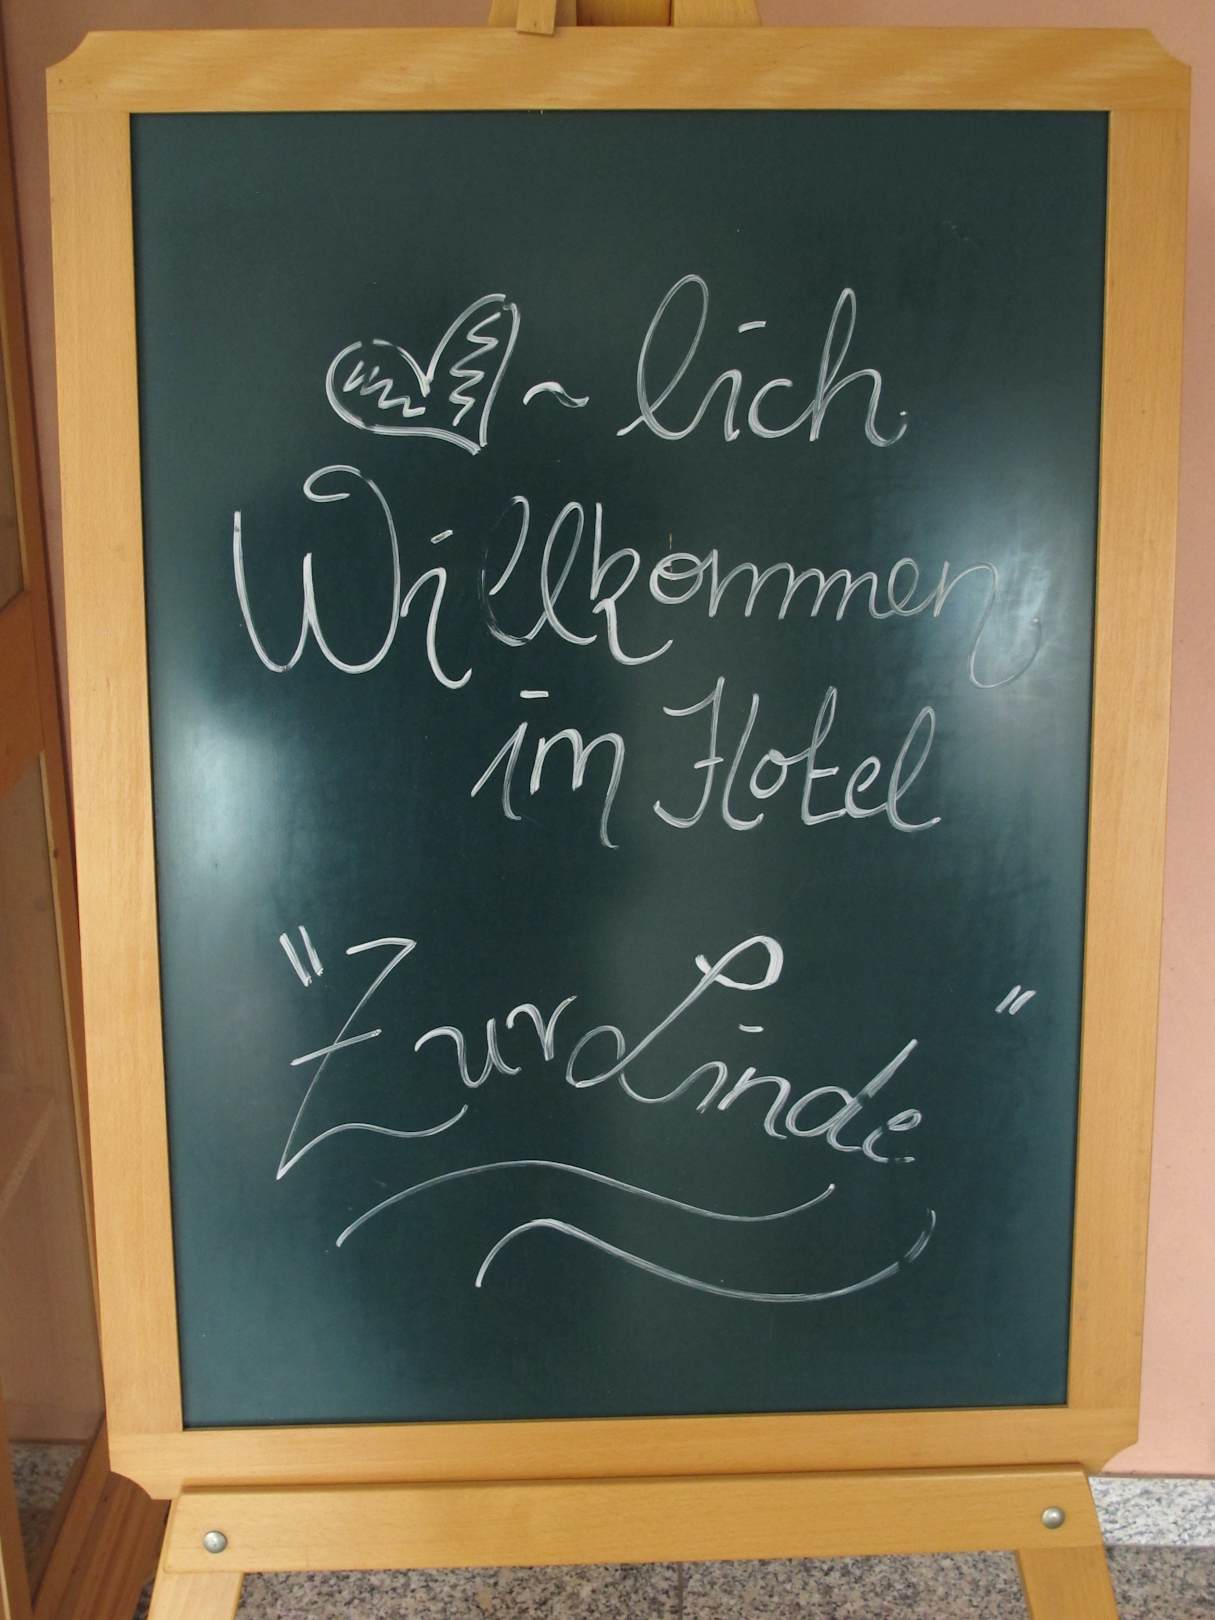 ~lich
Willkommen
im Hotel
"Zur Linde"